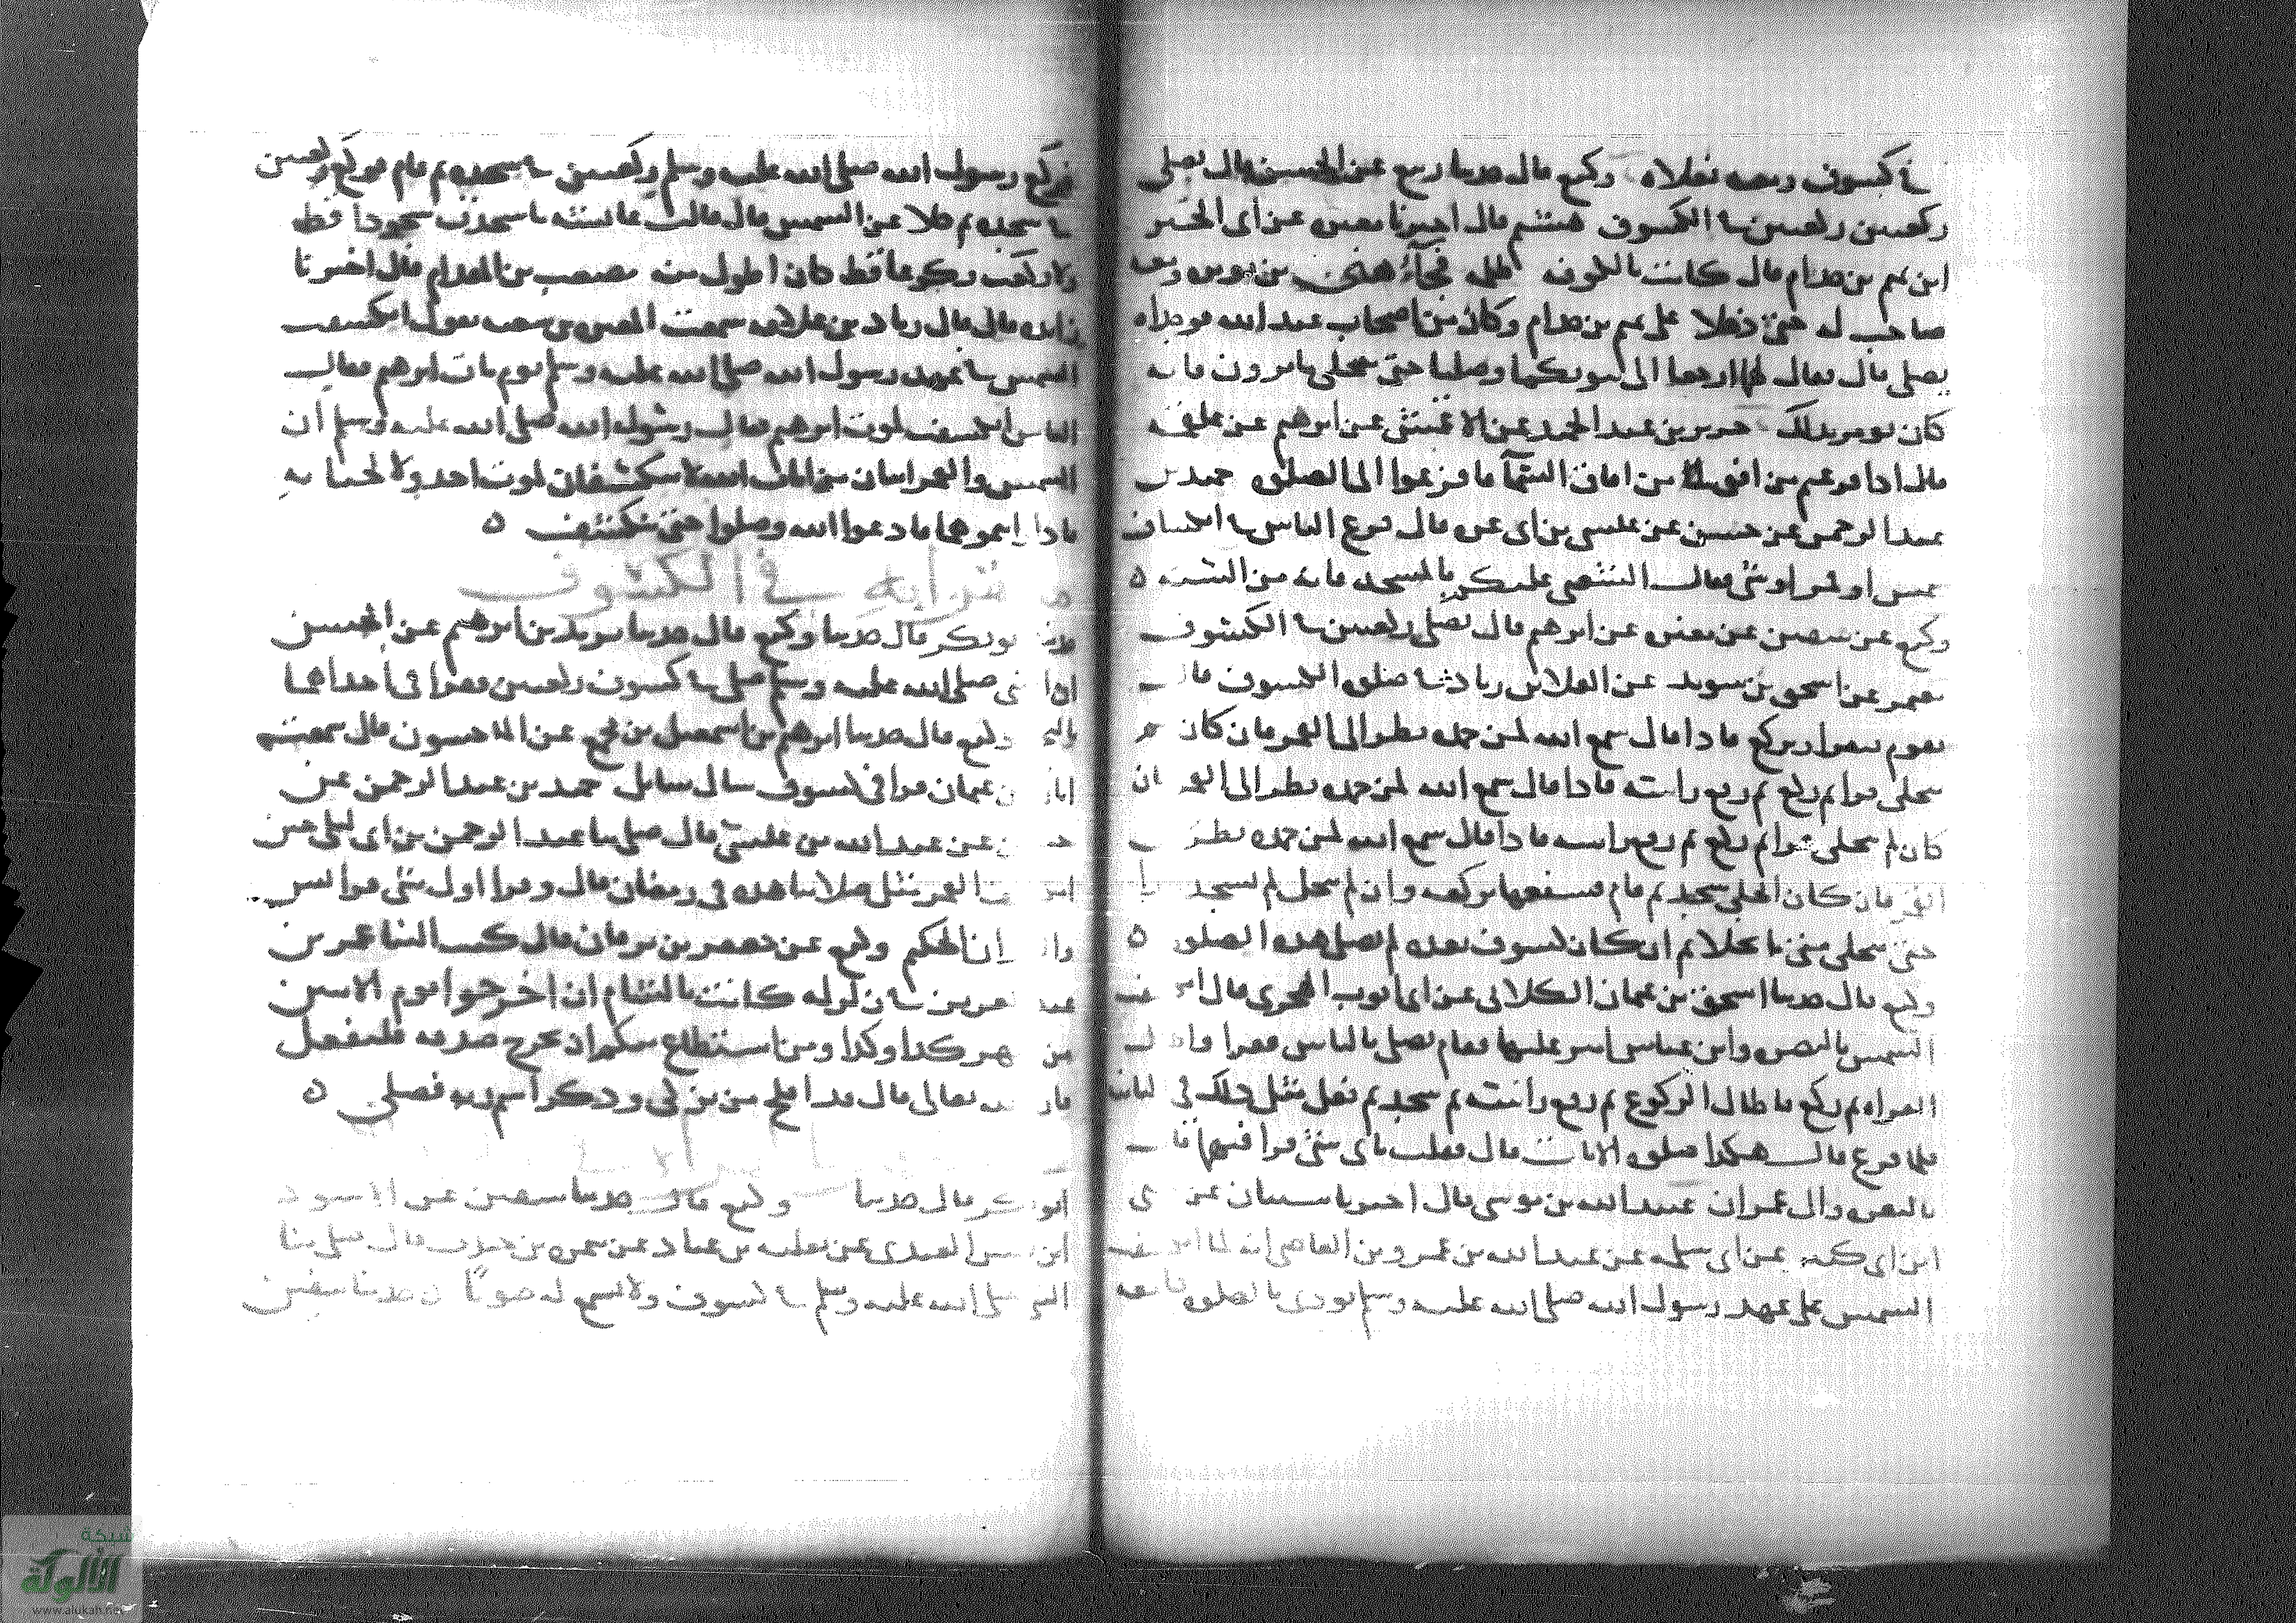 في كسوف ومعه نعلاه وكيع قال حدثنا ربيع عن الحسن قال يصلي
ركعتين ركعتين في الكسوف هشيم قال اخبرنا مغيرة عن أبي الخير
ابن تميم بن حذلم قال كانت بالكوفة ظلمة فجاء هني بن نويرة ومعه
صاحب له حتى دخلا على تميم بن حذلم وكان من أصحاب عبد الله فوجداه
يصلي قال فقال لهما ارجعا الى بيوتكما وصليا حتى ينجلي ما ترون فانه
كان يؤمر بذلك جرير بن عبد الحميد عن الاعمش عن ابرهيم عن علقمة
قال اذا فزعتم من افق من افاق السمآ فافزعوا الى الصلوة حميد بن
عبد الرحمن عن حسن عن عيسى بن ابي عزة قال فزع الناس في انكساف
شمس او قمر او شي فقال الشعبي عليكم بالمسجد فانه من السنة ه
وكيع عن سفين عن مغيرة عن ابرهيم قال يصلي ركعتين في الكسوف
معمر عن اسحق بن سويد عن العلا بن زياد في صلوة الكسوف قال
يقوم فيقرا ويركع فاذا قال سمع الله لمن حمده نظر الى القمر فان كان لم
ينجلي قرا ثم ركع ثم رفع راسه فاذا قال سمع الله لمن حمده نظر الى القمر فان
كان لم ينجلي قرا ثم ركع ثم رفع راسه فاذا قال سمع الله لمن حمده نظر
القمر فان كان انجلى سجد ثم قام فشفعها بركعة وان لم ينجل لم يسجد
حتى ينجلي متى ما تجلا ثم ان كان كسوف بعده لم يصل هذه الصلوة ه
وكيع قال حدثنا اسحق بن عثمان الكلابي عن ابي ايوب الهجري قال انكسفت
الشمس بالبصرة وابن عباس امير عليها فقام يصلي بالناس فقرا فاطال
القراه ثم ركع فاطال الركوع ثم رفع راسه ثم سجد ثم فعل مثل ذلك في الثانية
فلما فرغ قال هكذا صلوة الايات قال فقلت باي شي قرا فيهما قال
بالبقرة وال عمران عبيد الله بن موسى قال اخبرنا شيبان عن يحيى
ابن ابي كثير عن ابي سلمة عن عبد الله بن عمرو بن العاصي انه لما انكسفت
الشمس على عهد رسول الله صلى الله عليه وسلم نودي بالصلوة جامعة
فركع رسول الله صلى الله عليه وسلم ركعتين في سجدة ثم قام فركع ركعتين
في سجدة ثم جلا عن الشمس قال قالت عائشة ما سجدت سجودا قط
ولا ركعت ركوعا قط كان اطول منه مصعب بن المقدام قال اخبرنا
زائدة قال قال زياد بن علاقة سمعت المغيرة بن شعبة يقول انكسفت
الشمس في عهد رسول الله صلى الله عليه وسلم يوم مات ابرهيم فقال
الناس انكسفت لموت ابرهيم فقال رسول الله صلى الله عليه وسلم ان
الشمس والقمر ايتان من ايات الله لا ينكسفان لموت احد ولا لحياته
فاذا رايتموهما فادعوا الله وصلوا حتى تنكشف ه
ما يقرا به في الكسوف
حدثنا ابو بكر قال حدثنا وكيع قال حدثنا يزيد بن ابرهيم عن الحسن
ان النبي صلى الله عليه وسلم صلى في كسوف ركعتين فقرا في احداهما
بالنجم وكيع قال حدثنا ابرهيم بن اسمعيل بن مجمع عن الماجشون قال سمعت
ابان بن عثمان قرا في كسوف سال سايل حميد بن عبد الرحمن عن
حسن عن عبد الله بن عيسى قال صلى بنا عبد الرحمن بن ابي ليلى حين
انكسف القمر مثل صلاتنا هذه في رمضان قال وقرا اول شي قرا ليس
والقران الحكيم وكيع عن جعفر بن برقان قال كتب الينا عمر بن
عبد العزيز في زلزلة كانت بالشام ان اخرجوا يوم الاثنين
من شهر كذا وكذا ومن استطاع منكم ان يخرج صدقة فليفعل
فان الله تعالى قال قد افلح من تزكى وذكر اسم ربه فصلى ه
ابو بكر قال حدثنا وكيع قال حدثنا سفين عن الاسود
ابن قيس العبدي عن ثعلبة بن عباد عن سمرة بن جندب قال صلى بنا
النبي صلى الله عليه وسلم في كسوف ولا نسمع له صوتا حدثنا سفين